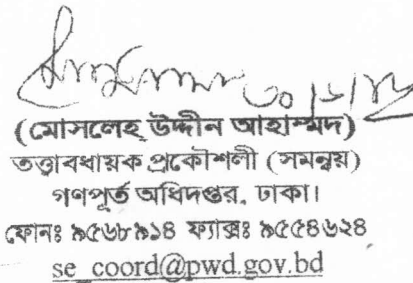 (মোসলেহ্ উদ্দীন আহাম্মদ)
তত্ত্বাবধায়ক প্রকৌশলী (সমন্বয়)
গণপূর্ত অধিদপ্তর, ঢাকা।
ফোনঃ ৯৫৬৮৯১৪ ফ্যাক্সঃ ৯৫৫৪৬২৪
se_coord@pwd.gov.bd